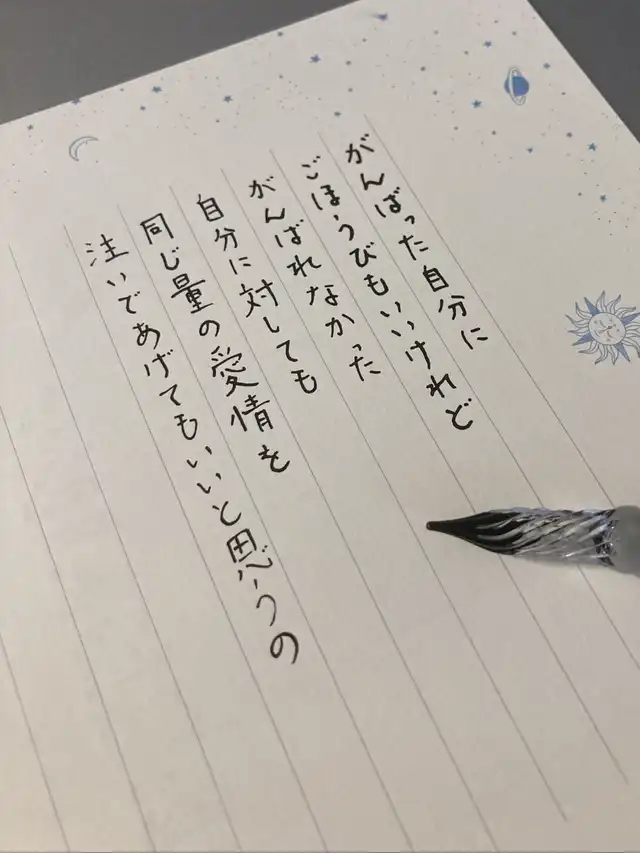 がんばった自分に
ごほうびもいいけれど
がんばれなかった
自分に対しても
同じ量の愛情を
注いであげてもいいと思うの